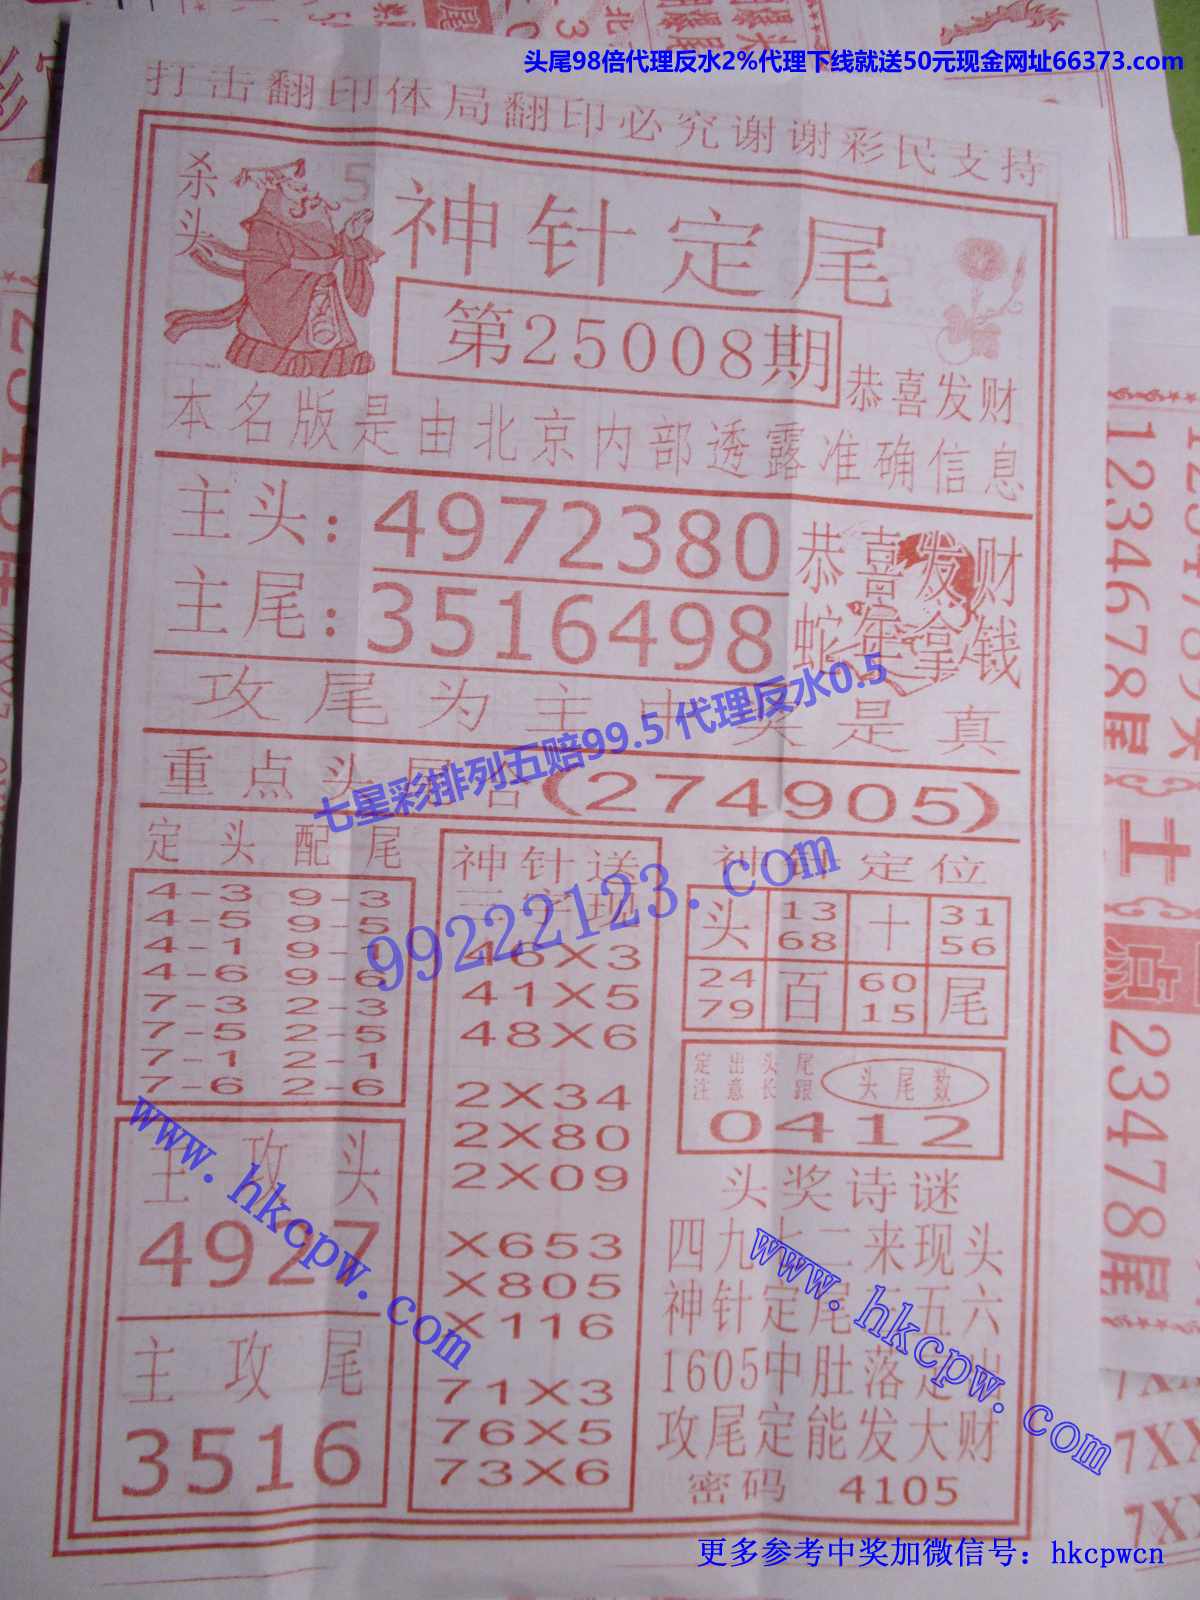 头尾98倍代理反水2%代理下线就送50元现金网址66373.com
打击翻印体局翻印必究谢谢彩民支持
杀头
5
神针定尾
第25008期
恭喜发财
本名版是由北京内部透露准确信息
主头:4972380
主尾:3516498
恭喜发财
蛇年拿钱
攻尾为主中奖是真
七星彩排列五赔99.5 代理反水0.5
重点头尾合(274905)
定头配尾
4-3 9-3
4-5 9-5
4-1 9-1
4-6 9-6
7-3 2-3
7-5 2-5
7-1 2-1
7-6 2-6
主攻头
4927
主攻尾
3516
神针送
三字现
46X3
41X5
48X6
2X34
2X80
2X09
X653
X805
X116
71X3
76X5
73X6
99222123.com
神针定位
头 13 68 十 31 56
24 79 百 60 15 尾
定出头尾
注意长跟
头尾数
0412
头奖诗谜
四九七二来现头
神针定尾三五六
1605中肚落定出
攻尾定能发大财
密码 4105
www.hkcpw.com
www.hkcpw.com
更多参考中奖加微信号:hkcpwcn
1234678尾
23478尾
7XX
7XX
7XX